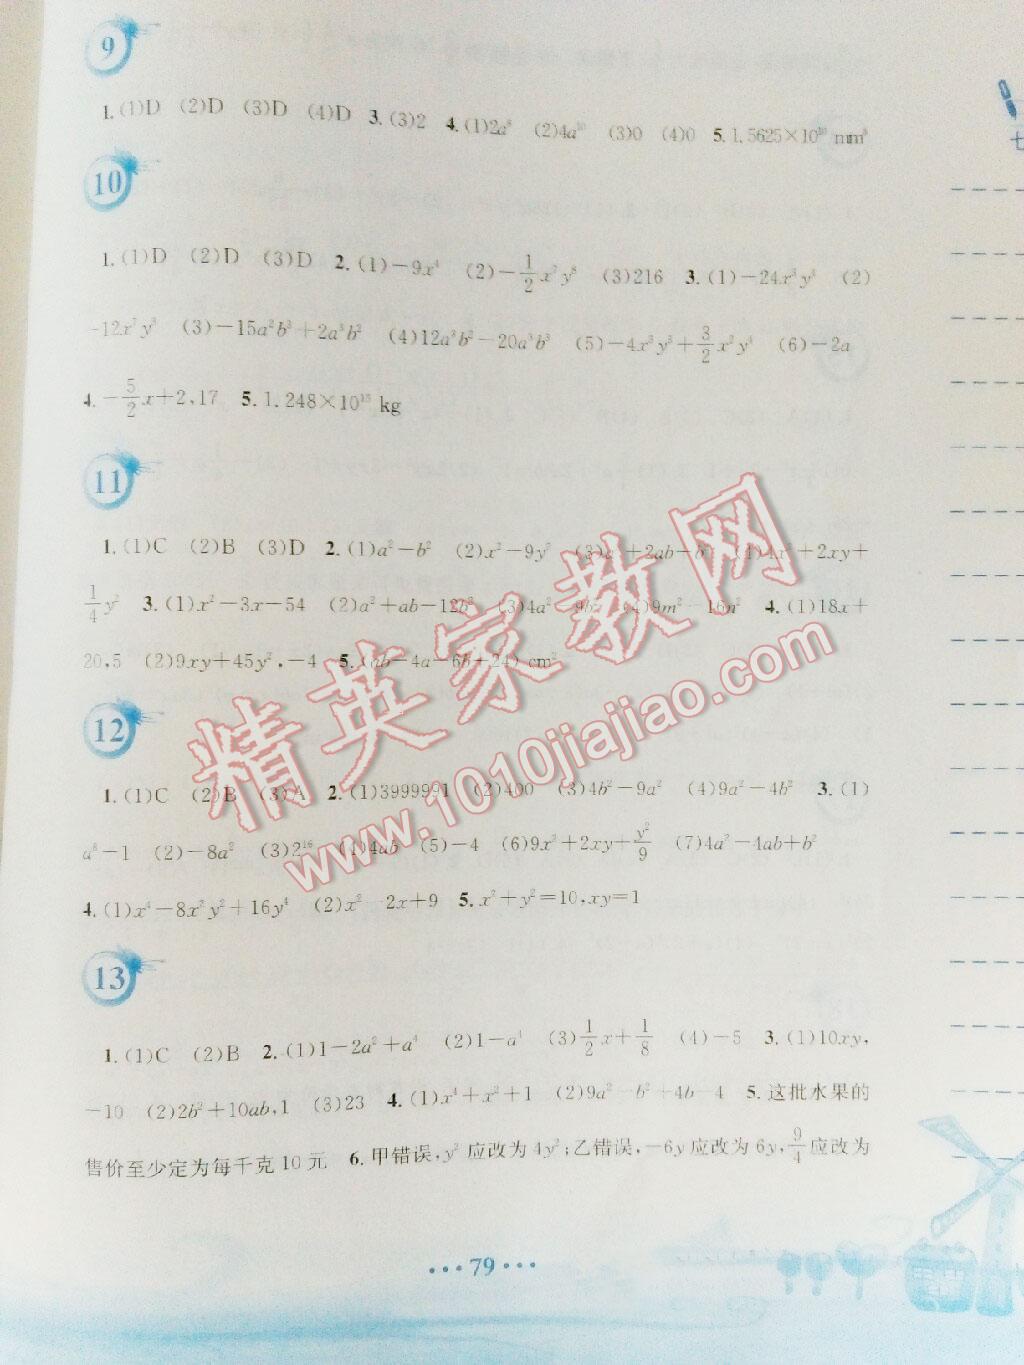 9
1.(1)D (2)D (3)D (4)D 3.(3)2 4.(1)2a⁸ (2)4a¹⁰ (3)0 (4)0 5.1.5625×10¹⁰ mm³
10
1.(1)D (2)D (3)D 2.(1)-9x⁴ (2)-1/2x⁷y⁸ (3)216 3.(1)-24x³y⁴ (2)
-12x⁷y³ (3)-15a²b³+2a³b² (4)12a³b²-20a³b³ (5)-4x³y³+3/2x²y⁴ (6)-2a
4.-5/2x+2,17 5.1.248×10¹⁵ kg
11
1.(1)C (2)B (3)D 2.(1)a²-b² (2)x²-9y² (3)a²+2ab+b² (4)4x²+2xy+
1/4y² 3.(1)x²-3x-54 (2)a²+ab-12b² (3)4a²-9b² (4)9m²-16n² 4.(1)18x+
20,5 (2)9xy+45y²,-4 5.(ab-4a-6b+24) cm²
12
1.(1)C (2)B (3)A 2.(1)3999991 (2)400 (3)4b²-9a² (4)9a²-4b² 3.(1)
a⁸-1 (2)-8a² (3)2¹⁶ (4)4ab (5)-4 (6)9x²+2xy+y²/9 (7)4a²-4ab+b²
4.(1)x⁴-8x²y²+16y⁴ (2)x²-2x+9 5.x²+y²=10,xy=1
13
1.(1)C (2)B 2.(1)1-2a²+a⁴ (2)1-a⁴ (3)1/2x+1/8 (4)-5 3.(1)10xy,
-10 (2)2b²+10ab,1 (3)23 4.(1)x⁴+x²+1 (2)9a²-b²+4b-4 5.这批水果的
售价至少定为每千克10元 6.甲错误,y²应改为4y²;乙错误,-6y应改为6y,9/4应改为
···79···
精英家教网
www.1010jiajiao.com
七